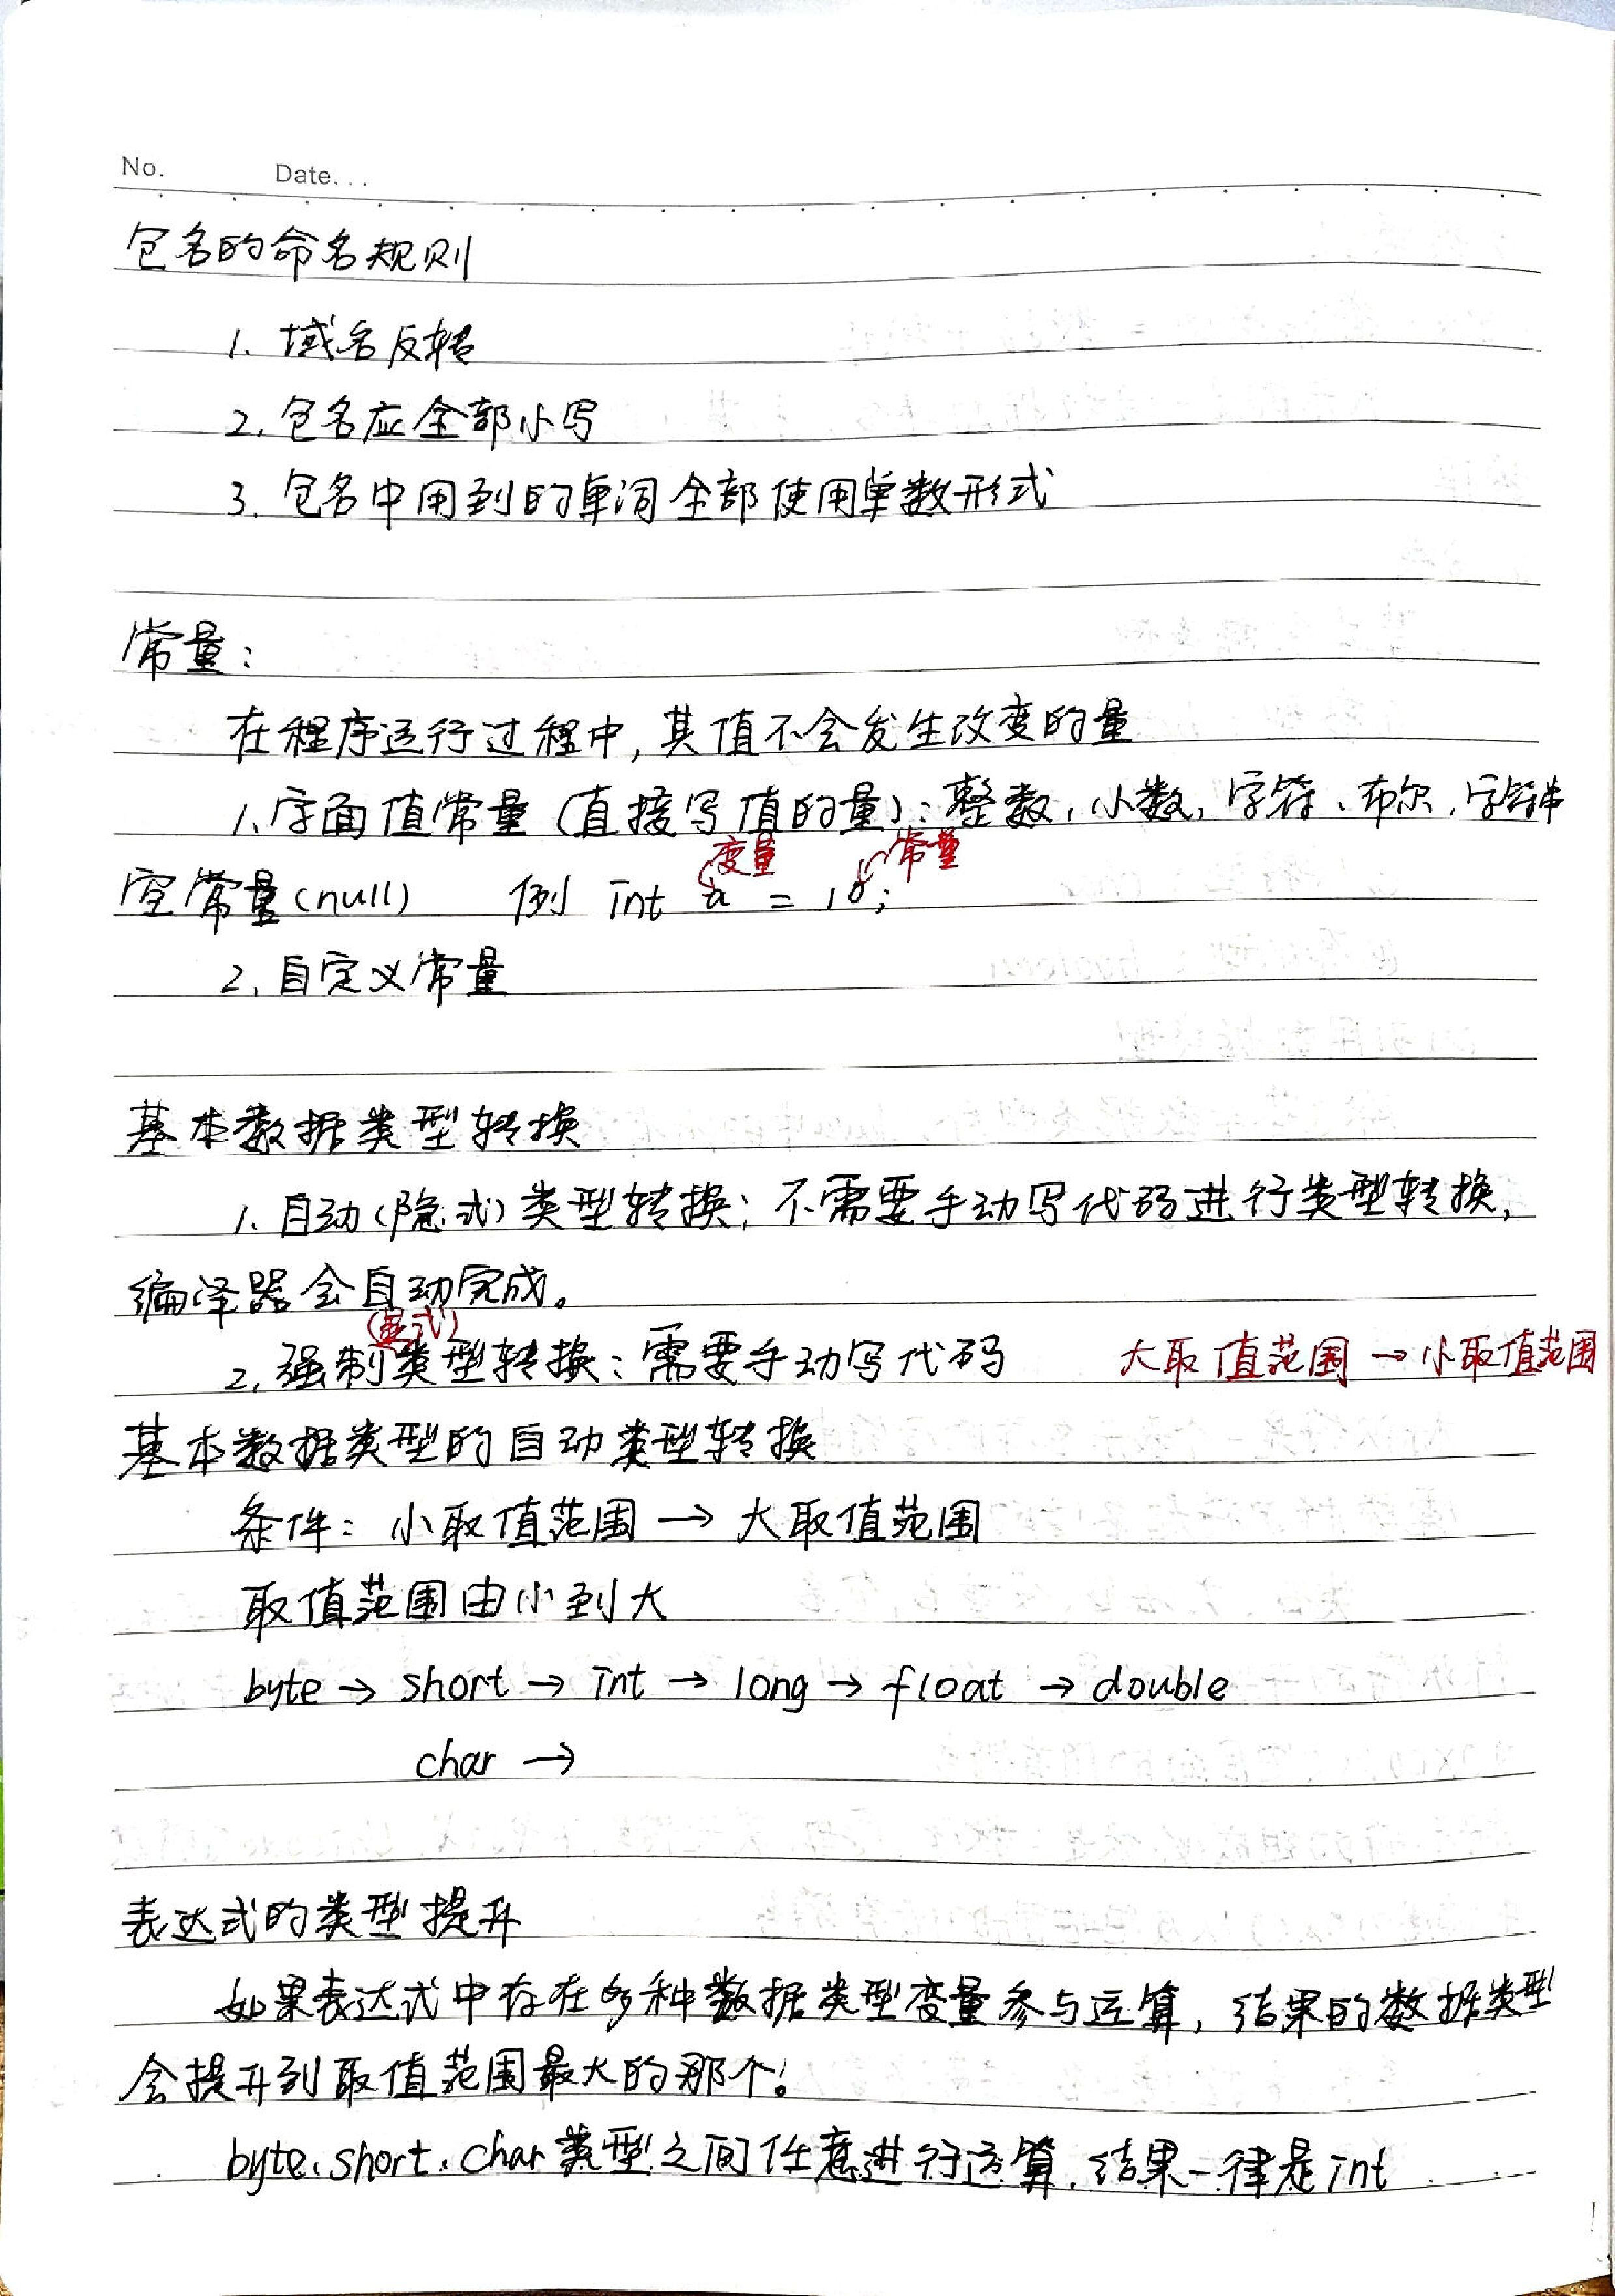 No. Date...
包名的命名规则
1. 域名反转
2. 包名应全部小写
3. 包名中用到的单词全部使用单数形式
常量：
在程序运行过程中, 其值不会发生改变的量
1. 字面值常量 (直接写值的量)：整数、小数、字符、布尔、字符串
变量 常量
空常量(null) 例 int a = 10;
2. 自定义常量
基本数据类型转换
1. 自动(隐式)类型转换：不需要手动写代码进行类型转换,
编译器会自动完成。
(显式)
2. 强制类型转换：需要手动写代码 大取值范围 → 小取值范围
基本数据类型的自动类型转换
条件：小取值范围 → 大取值范围
取值范围由小到大
byte → short → int → long → float → double
char →
表达式的类型提升
如果表达式中存在多种数据类型变量参与运算, 结果的数据类型
会提升到取值范围最大的那个!
byte、short、char类型之间任意进行运算, 结果一律是int